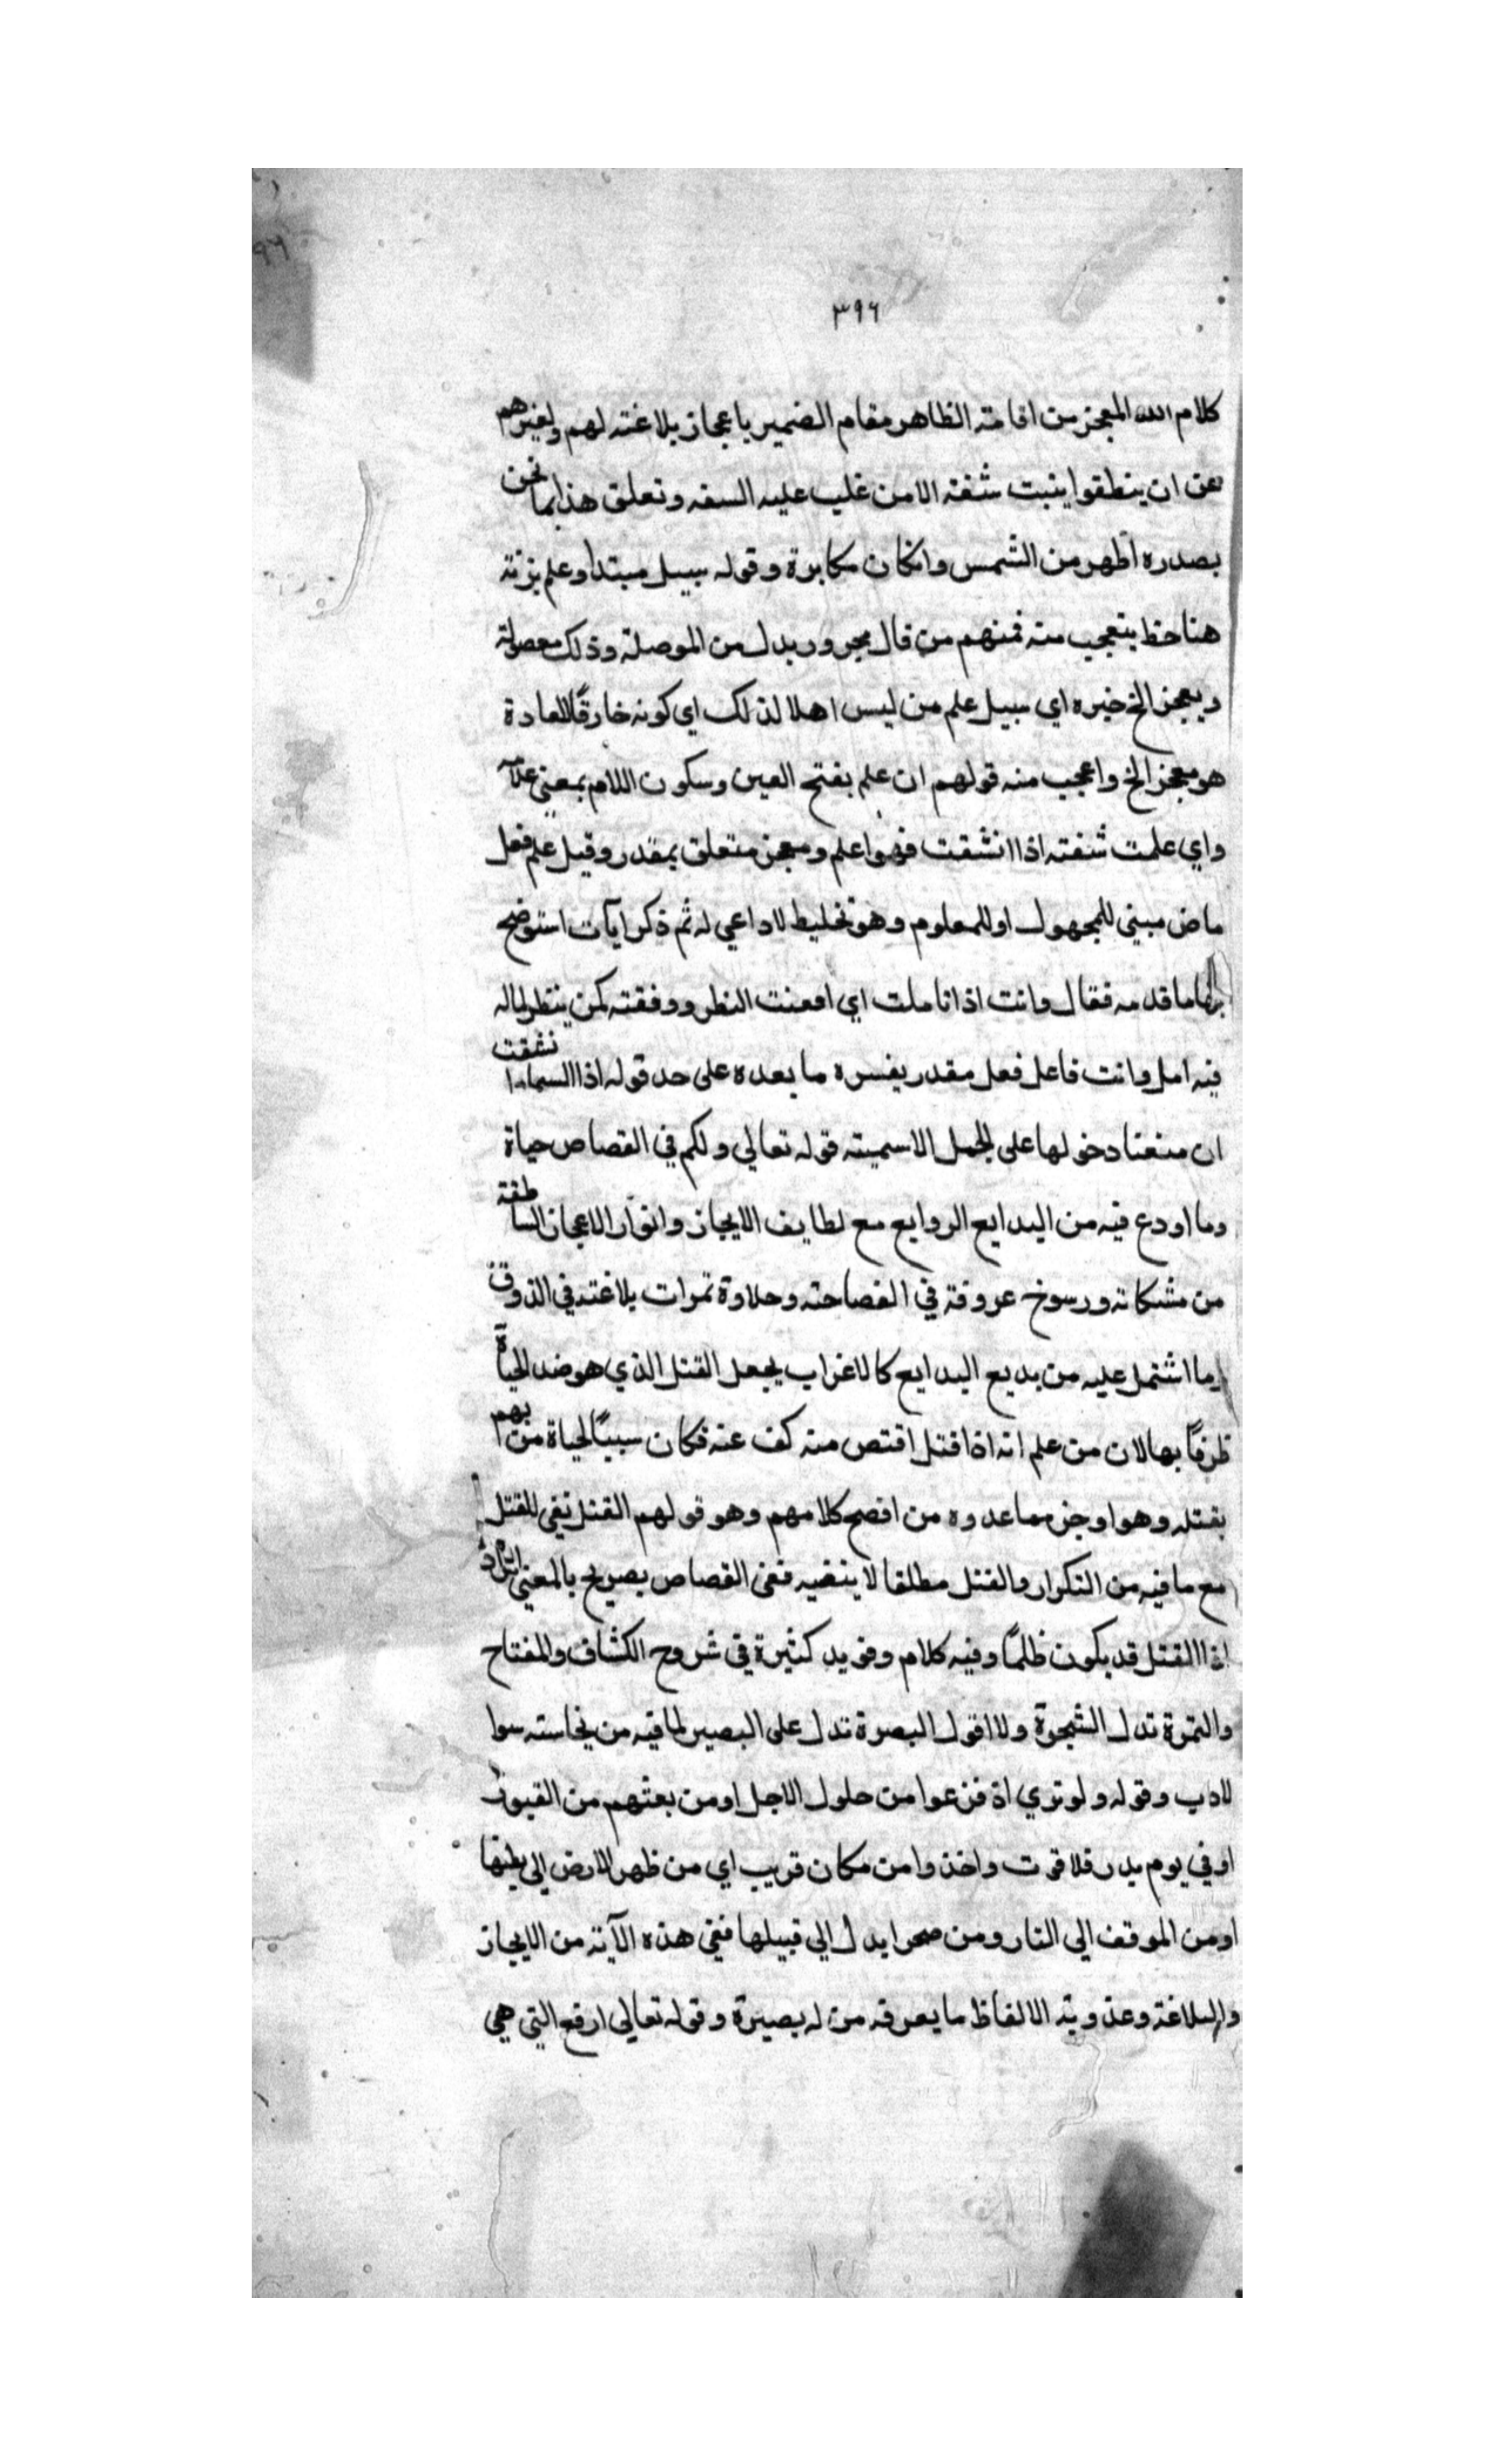 ٣٩٦
كلام الله المعجز من اقامة الظاهر مقام الضمير باعجاز بلاغته لهم ولغيرهم
عن ان ينطقوا ببنت شفة الا من غلب عليه السفه وتعلق هذا بما نحن
بصدره اظهر من الشمس وانكان مكابرة وقوله سبيل مبتدا وعلم بزنة
هنا خظ يتعجب منه فمنهم من قال مجرور بدل من الموصلة وذلك معصولة
وبعجز الخ خبره اي سبيل علم من ليس اهلا لذلك اي كونه خارقًا للعادة
هو معجز الخ واعجب منه قولهم ان علم بفتح العين وسكون اللام بمعنى علامة
واي علمت شفته اذا انشقت فهو اعلم ومعجز متعلق بمقدر وقيل علم فعل
ماض مبني للمجهول او للمعلوم وهو تخليط لا داعي له ثم ذكر آيات استوضح
بها ما قدمه فقال وانت اذا تاملت اي امعنت النظر ووفقته كمن ينتظر لماله
فيه امل وانت فاعل فعل مقدر يفسره ما بعده على حد قوله اذا السماء انشقت
ان منعنا دخولها على الجمل الاسمية قوله تعالى ولكم في القصاص حياة
وما اودع فيه من البدايع الروايع مع لطايف الايجاز وانوار الاعجاز الساطعة
من مشكاته ورسوخ عروقة في الفصاحة وحلاوة ثمرات بلاغته في الذوق
وما اشتمل عليه من بديع البدايع كالاغراب بجعل القتل الذي هو ضد الحياة
ظرفًا بها لان من علم انه اذا قتل اقتص منه كف عنه فكان سببًا لحياة من يهم
بقتله وهو اوجز مما عدوه من افصح كلامهم وهو قولهم القتل نفي للقتل
مع ما فيه من التكرار والقتل مطلقا لا ينفيه ففي القصاص تصريح بالمعنى المراد
اذا القتل قد يكون ظلمًا وفيه كلام وفويد كثيرة في شروح الكشاف والمفتاح
والثمرة تدل الشجرة ولا اقول البصرة تدل على البصير لما فيه من نجاسته سوا
لادب وقوله ولو تري اذ فزعوا من حلول الاجل او من بعثهم من القبور
او في يوم بدر فلا فوت واخذوا من مكان قريب اي من ظهر الارض الى بطنها
او من الموقف الي النار ومن صحرا بدل الي قبيلها ففي هذه الآية من الايجاز
والبلاغة وعذوبة الالفاظ ما يعرفه من له بصيرة وقوله تعالى ارفع التي هي